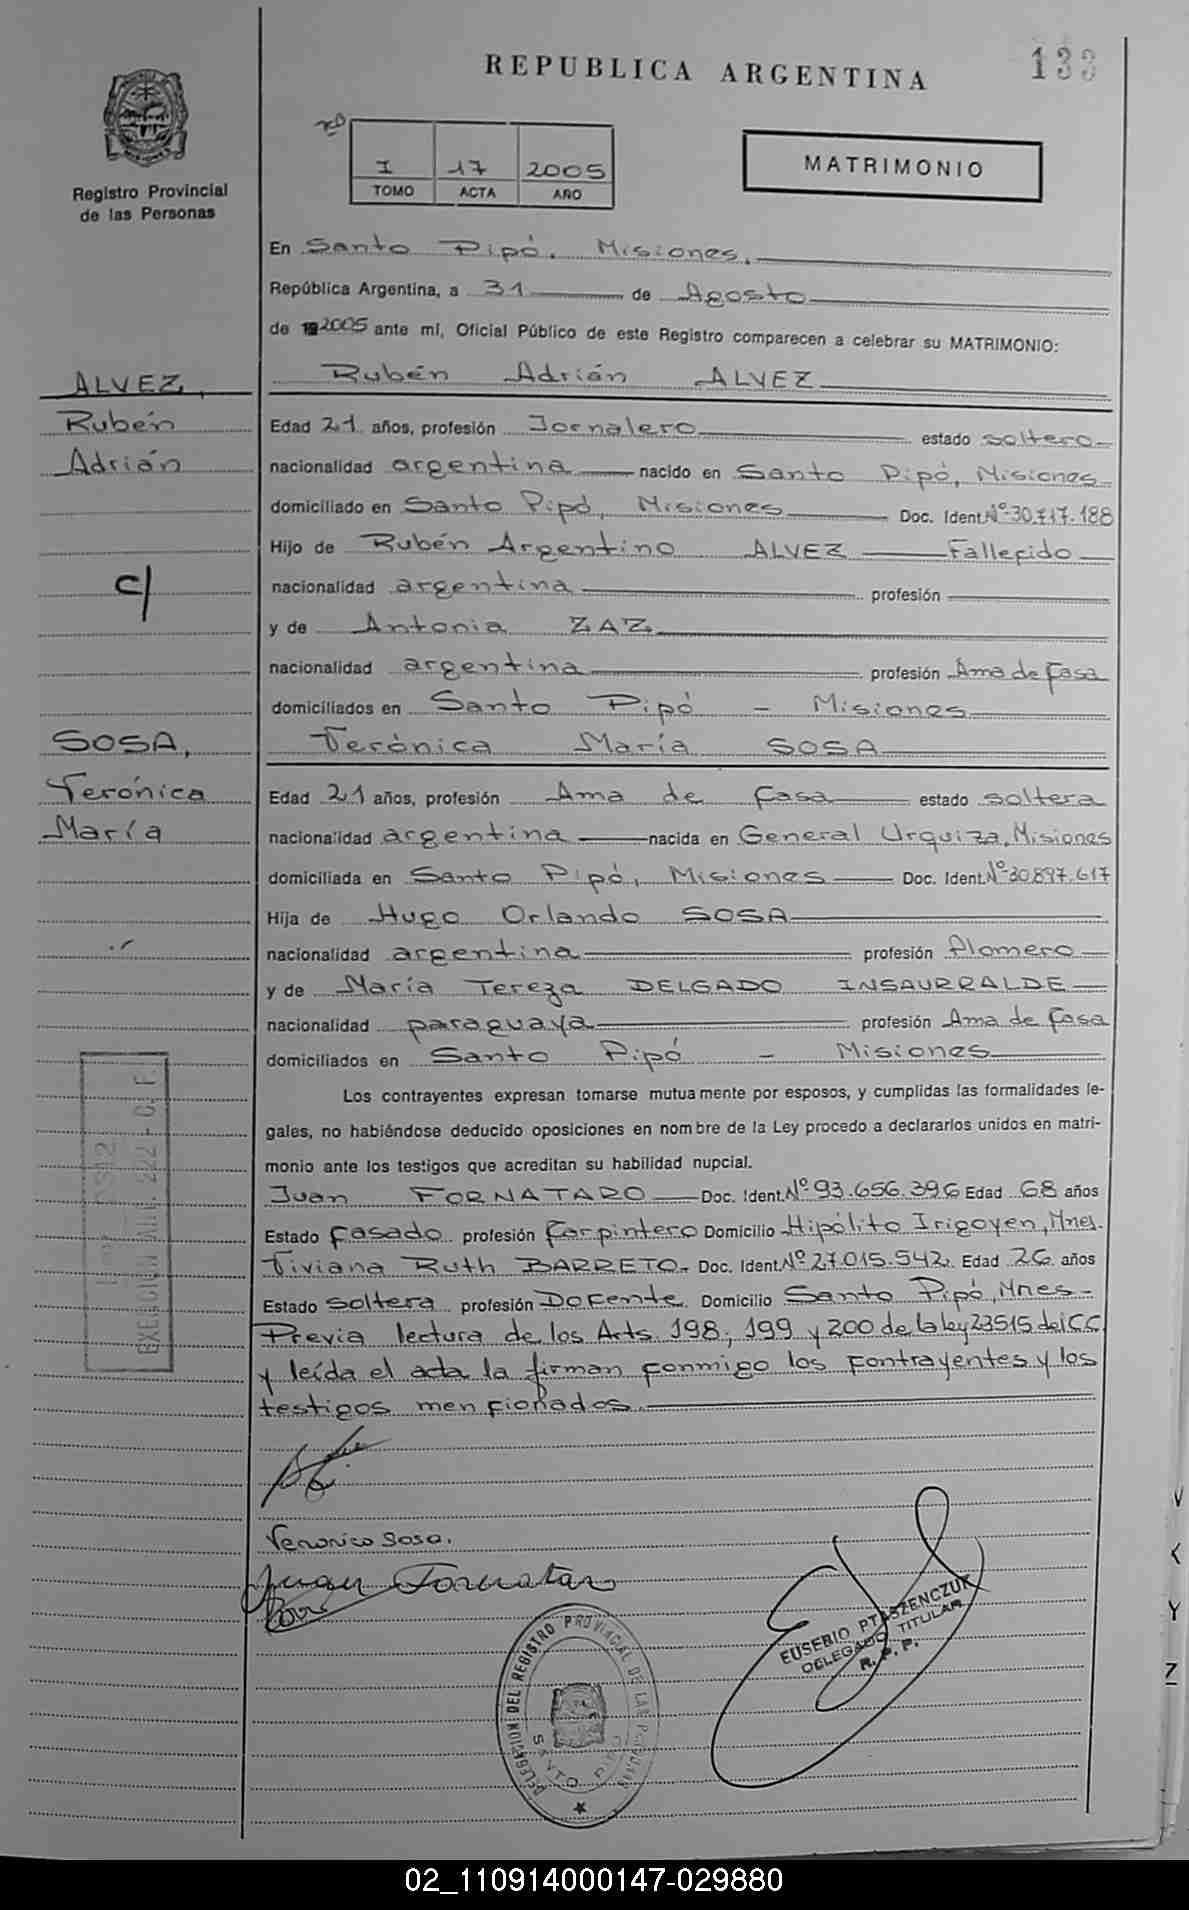 REPUBLICA ARGENTINA
133
Registro Provincial
de las Personas
I 17 2005
TOMO ACTA AÑO
MATRIMONIO
En Santo Pipó. Misiones.
República Argentina, a 31 de Agosto
de 2005 ante mí, Oficial Público de este Registro comparecen a celebrar su MATRIMONIO:
ALVEZ,
Rubén
Adrián
c/
SOSA,
Verónica
María
Rubén Adrián ALVEZ
Edad 21 años, profesión Jornalero estado soltero
nacionalidad argentina nacido en Santo Pipó, Misiones
domiciliado en Santo Pipó, Misiones Doc. Ident. Nº 30.717.188
Hijo de Rubén Argentino ALVEZ Fallecido
nacionalidad argentina profesión
y de Antonia ZAZ
nacionalidad argentina profesión Ama de Casa
domiciliados en Santo Pipó - Misiones
Verónica María SOSA
Edad 21 años, profesión Ama de Casa estado soltera
nacionalidad argentina nacida en General Urquiza, Misiones
domiciliada en Santo Pipó, Misiones Doc. Ident. Nº 30.897.617
Hija de Hugo Orlando SOSA
nacionalidad argentina profesión Plomero
y de María Tereza DELGADO INSAURRALDE
nacionalidad paraguaya profesión Ama de Casa
domiciliados en Santo Pipó - Misiones
Los contrayentes expresan tomarse mutuamente por esposos, y cumplidas las formalidades le-
gales, no habiéndose deducido oposiciones en nombre de la Ley procedo a declararlos unidos en matri-
monio ante los testigos que acreditan su habilidad nupcial.
Juan FORNATARO Doc. Ident. Nº 93.656.396 Edad 68 años
Estado Casado profesión Carpintero Domicilio Hipólito Irigoyen, Mnes.
Viviana Ruth BARRETO. Doc. Ident. Nº 27.015.542. Edad 26 años
Estado soltera profesión Docente Domicilio Santo Pipó, Mnes-
Previa lectura de los Arts. 198, 199 y 200 de la ley 23515 del C.C.
y leída el acta la firman conmigo los contrayentes y los
testigos mencionados.
Veronica Sosa.
Juan Fornataro
EUSEBIO PTASZENCZUK
DELEGADO TITULAR
R. P. P.
DELEGACION DEL REGISTRO PROVINCIAL DE LAS PERSONAS
SANTO PIPO
02_110914000147-029880